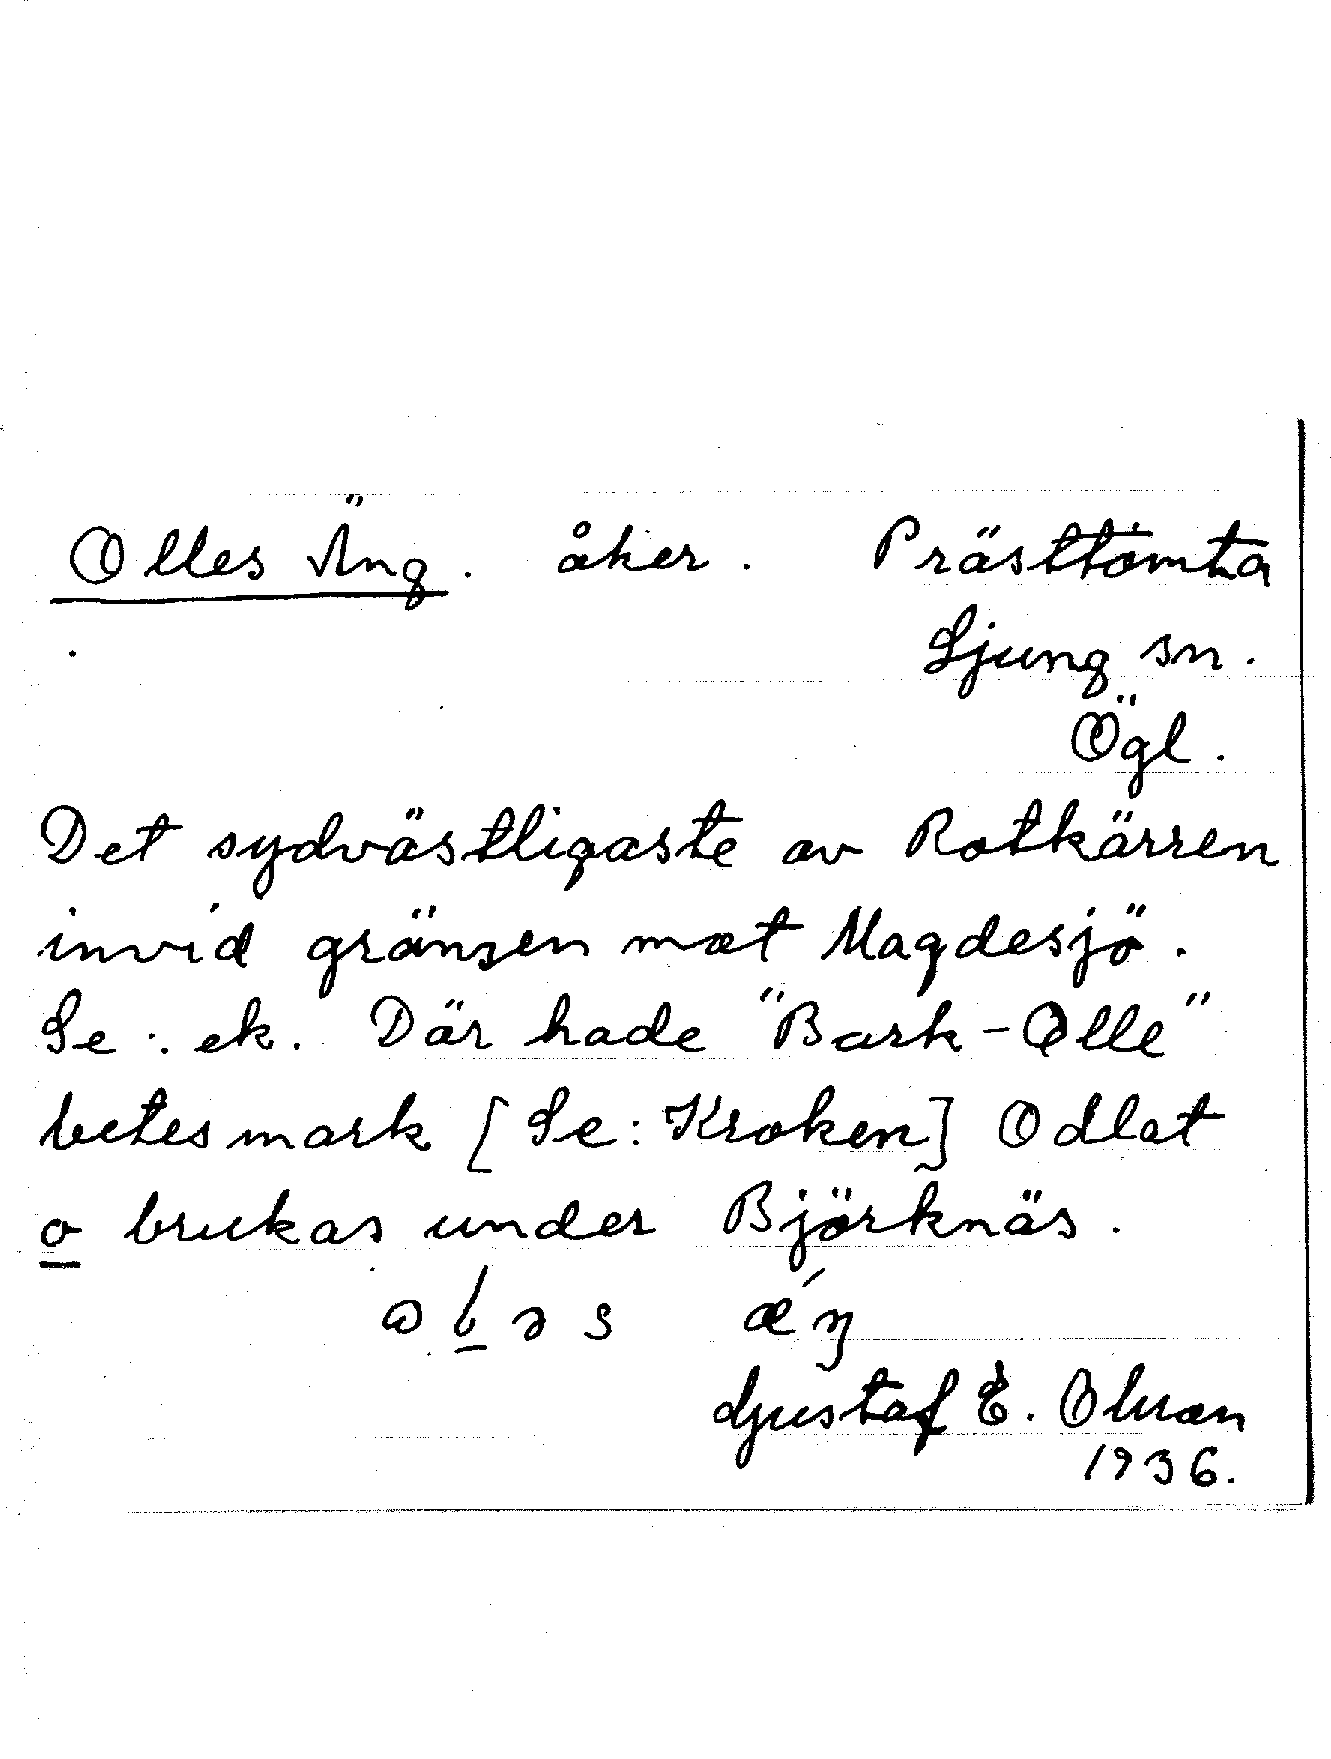 Olles Äng. åker. Prästtomta
Ljung sn.
Ögl.
Det sydvästligaste av Rotkärren
invid gränsen mot Magdesjö.
Se: ek. Där hade "Bark-Olle"
betesmark [Se: Kroken] Odlat
o brukas under Björknäs.
Gustaf E. Olman
1936.